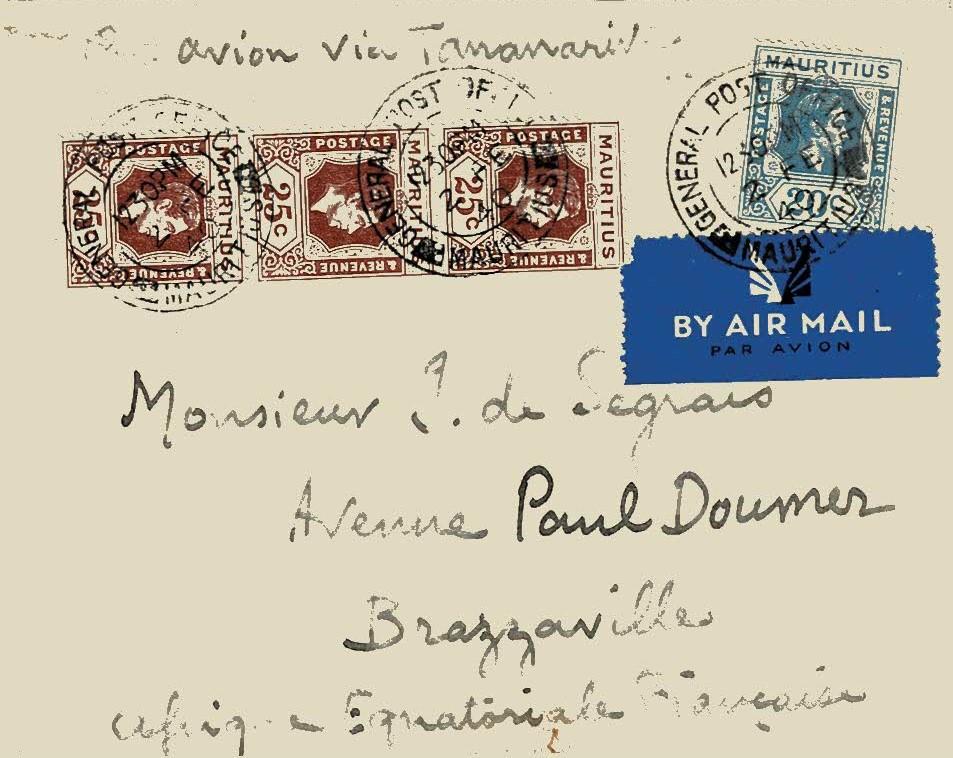 avion via Tananarive
MAURITIUS
POSTAGE
& REVENUE
20c
POSTAGE
MAURITIUS
25c
& REVENUE
POSTAGE
MAURITIUS
25c
& REVENUE
POSTAGE
MAURITIUS
25c
& REVENUE
GENERAL POST OFFICE
MAURITIUS
GENERAL POST OFFICE
MAURITIUS
GENERAL POST OFFICE
MAURITIUS
BY AIR MAIL
PAR AVION
Monsieur J. de Segrais
Avenue Paul Doumer
Brazzaville
Afrique Equatoriale Française